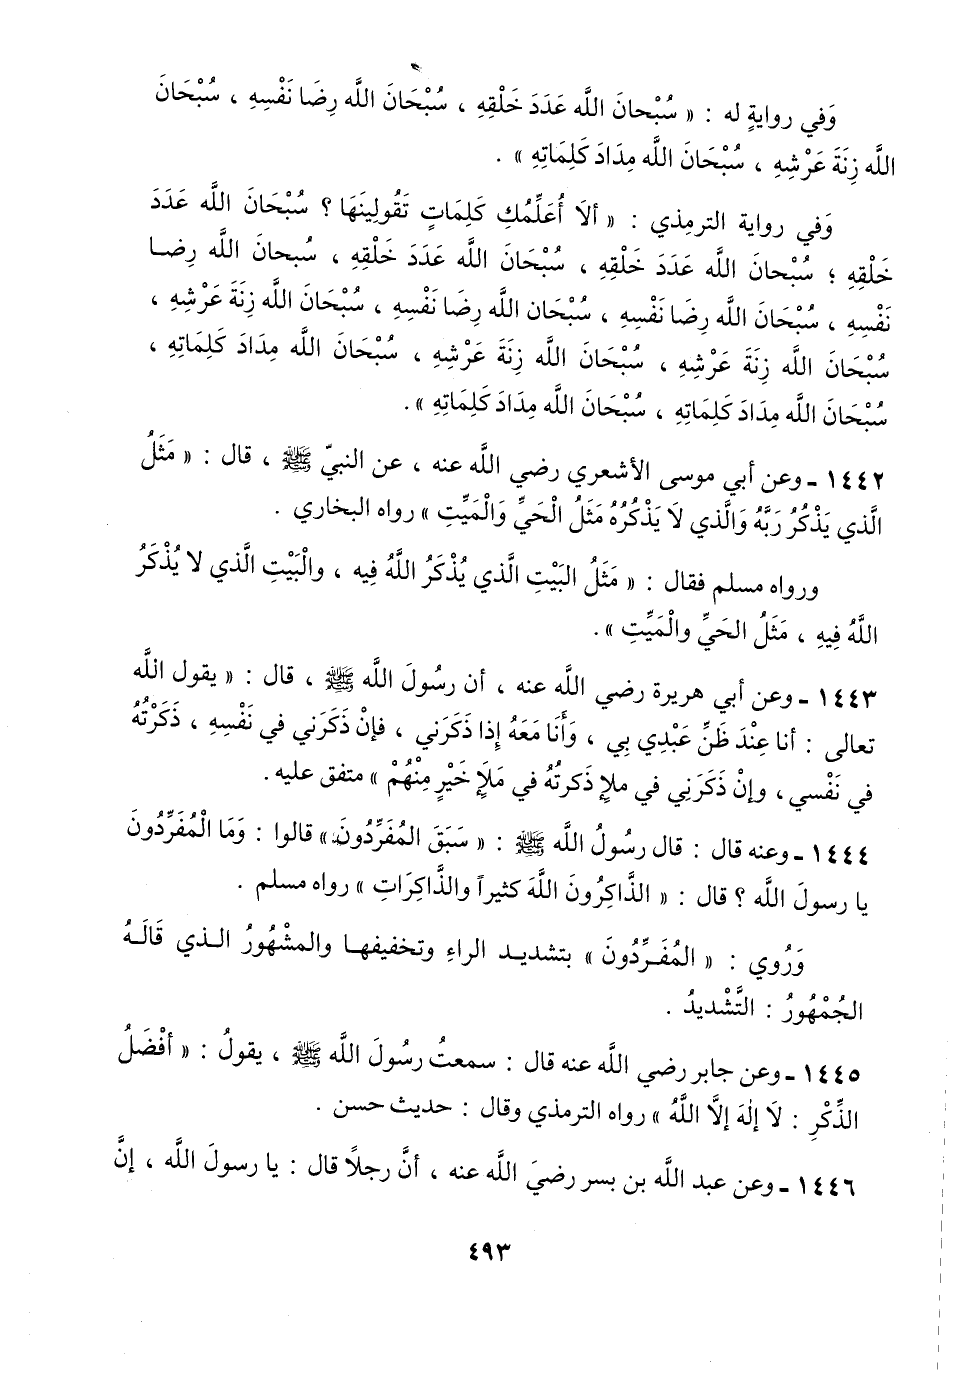 وَفي روايةٍ له : « سُبْحانَ اللَّه عَدَدَ خَلْقِهِ ، سُبْحَانَ اللَّه رِضَا نَفْسِهِ ، سُبْحَانَ
اللَّه زِنَةَ عَرْشِهِ ، سُبْحَانَ اللَّه مِدَادَ كَلِمَاتِهِ » .
وَفي رواية الترمذي : « ألَا أُعَلِّمُكِ كَلِمَاتٍ تَقُولِينَهَا ؟ سُبْحَانَ اللَّه عَدَدَ
خَلْقِهِ ؛ سُبْحانَ اللَّه عَدَدَ خَلْقِهِ ، سُبْحَانَ اللَّه عَدَدَ خَلْقِهِ ، سُبحانَ اللَّه رِضـا
نَفْسِهِ ، سُبْحَانَ اللَّه رِضَا نَفْسِهِ ، سُبْحَان اللَّه رِضَا نَفْسِهِ ، سُبْحَانَ اللَّه زِنَةَ عَرْشِهِ ،
سُبْحَانَ اللَّه زِنَةَ عَرْشِهِ ، سُبْحَانَ اللَّه زِنَةَ عَرْشِهِ ، سُبْحَانَ اللَّه مِدَادَ كَلِمَاتِهِ ،
سُبْحَانَ اللَّه مِدَادَ كَلِمَاتِهِ ، سُبْحَانَ اللَّه مِدَادَ كَلِمَاتِهِ » .
١٤٤٢ - وعن أبي موسى الأشعري رضي اللَّه عنه ، عن النبيّ ﷺ ، قال : « مَثَلُ
الَّذي يَذْكُرُ رَبَّهُ وَالَّذي لَا يَذْكُرُهُ مَثَلُ الْحَيِّ وَالْمَيِّتِ » رواه البخاري .
ورواه مسلم فقال : « مَثَلُ البَيْتِ الَّذي يُذْكَرُ اللَّهُ فِيه ، والْبَيْتِ الَّذي لا يُذْكَرُ
اللَّهُ فِيهِ ، مَثَلُ الحَيِّ والْمَيِّتِ » .
١٤٤٣ - وعن أبي هريرة رضي اللَّه عنه ، أن رسُولَ اللَّه ﷺ ، قال : « يقول اللَّه
تعالى : أنا عِنْدَ ظَنِّ عَبْدِي بِي ، وَأَنَا مَعَهُ إِذا ذَكَرَني ، فإنْ ذَكَرَني في نَفْسِهِ ، ذَكَرْتُهُ
في نَفْسي ، وإنْ ذَكَرَنِي في ملإٍ ذَكرتُهُ في مَلَإٍ خَيْرٍ مِنْهُمْ » متفق عليه .
١٤٤٤ - وعنه قال : قال رسُولُ اللَّه ﷺ : « سَبَقَ المُفَرِّدُونَ » قالوا : وَمَا الْمُفَرِّدُونَ
يا رسولَ اللَّه ؟ قال : « الذَّاكِرُونَ اللَّهَ كثيراً والذَّاكِرَاتِ » رواه مسلم .
وَرُوي : « المُفَـرِّدُونَ » بتشديـد الراءِ وتخفيفهـا والمشْهُورُ الـذي قَالَـهُ
الجُمْهُورُ : التَّشْديدُ .
١٤٤٥ - وعن جابر رضي اللَّه عنه قال : سمعتُ رسُولَ اللَّه ﷺ ، يقولُ : « أفْضَلُ
الذِّكْرِ : لَا إلٰهَ إلَّا اللَّهُ » رواه الترمذي وقال : حديث حسن .
١٤٤٦ - وعن عبد اللَّه بن بسر رضيَ اللَّه عنه ، أنَّ رجلاً قال : يا رسولَ اللَّه ، إنَّ
٤٩٣